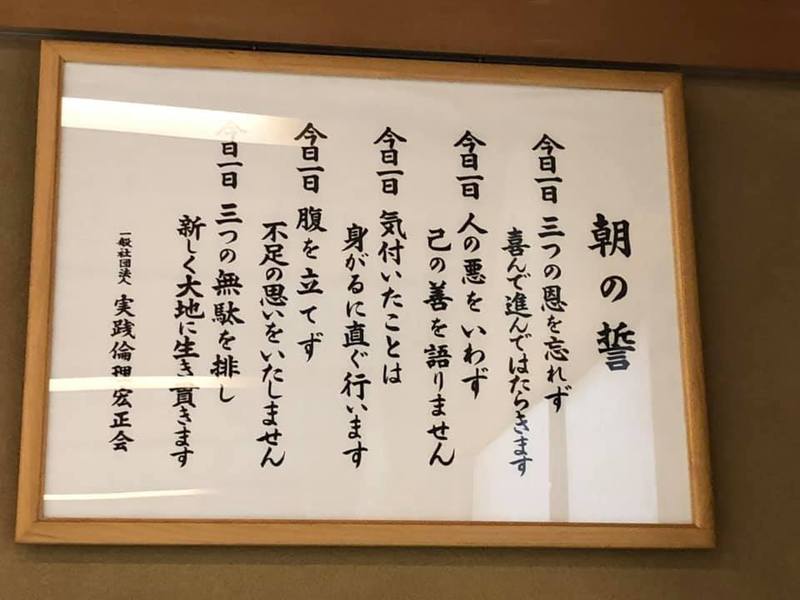 朝の誓
今日一日 三つの恩を忘れず
喜んで進んではたらきます
今日一日 人の悪をいわず
己の善を語りません
今日一日 気付いたことは
身がるに直ぐ行います
今日一日 腹を立てず
不足の思いをいたしません
今日一日 三つの無駄を排し
新しく大地に生き貫きます
一般社団法人 実践倫理宏正会